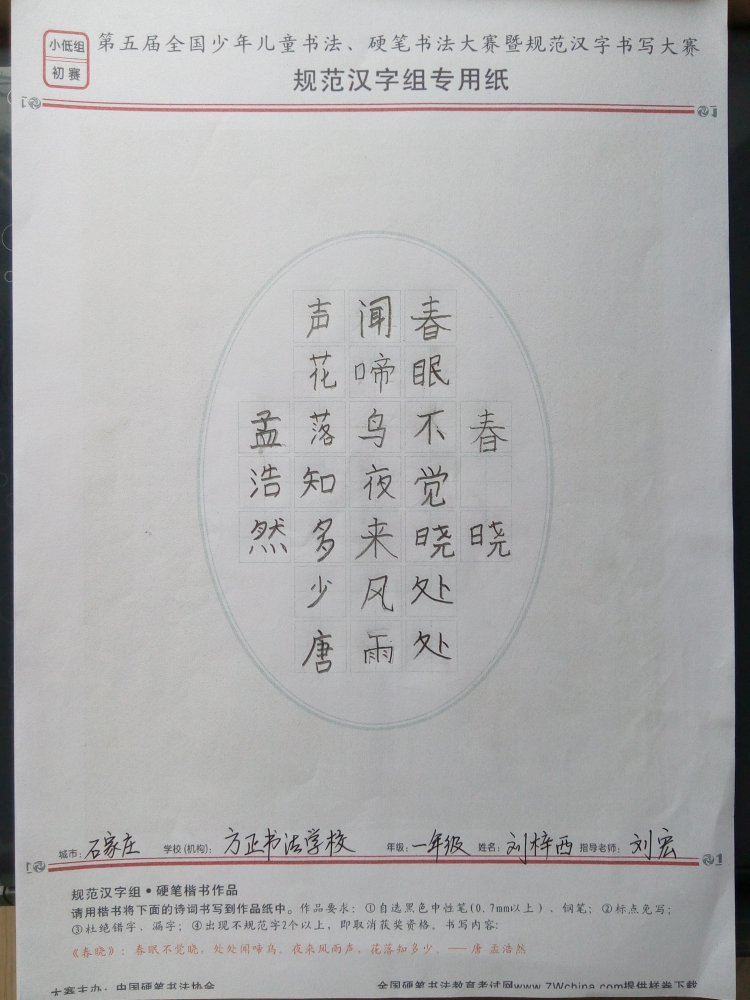 小低组
初赛
第五届全国少年儿童书法、硬笔书法大赛暨规范汉字书写大赛
规范汉字组专用纸
春晓
春眠不觉晓处处
闻啼鸟夜来风雨
声花落知多少唐
孟浩然
城市：石家庄 学校(机构)：方正书法学校 年级：一年级 姓名：刘梓西 指导老师：刘宏
规范汉字组·硬笔楷书作品
请用楷书将下面的诗词书写到作品纸中。作品要求：①自选黑色中性笔(0.7mm以上)、钢笔；②标点免写；
③杜绝错字、漏字；④出现不规范字2个以上，即取消获奖资格。书写内容：
《春晓》：春眠不觉晓，处处闻啼鸟。夜来风雨声，花落知多少。——唐 孟浩然
大赛主办：中国硬笔书法协会 全国硬笔书法教育考试网www.7Wchina.com提供样卷下载